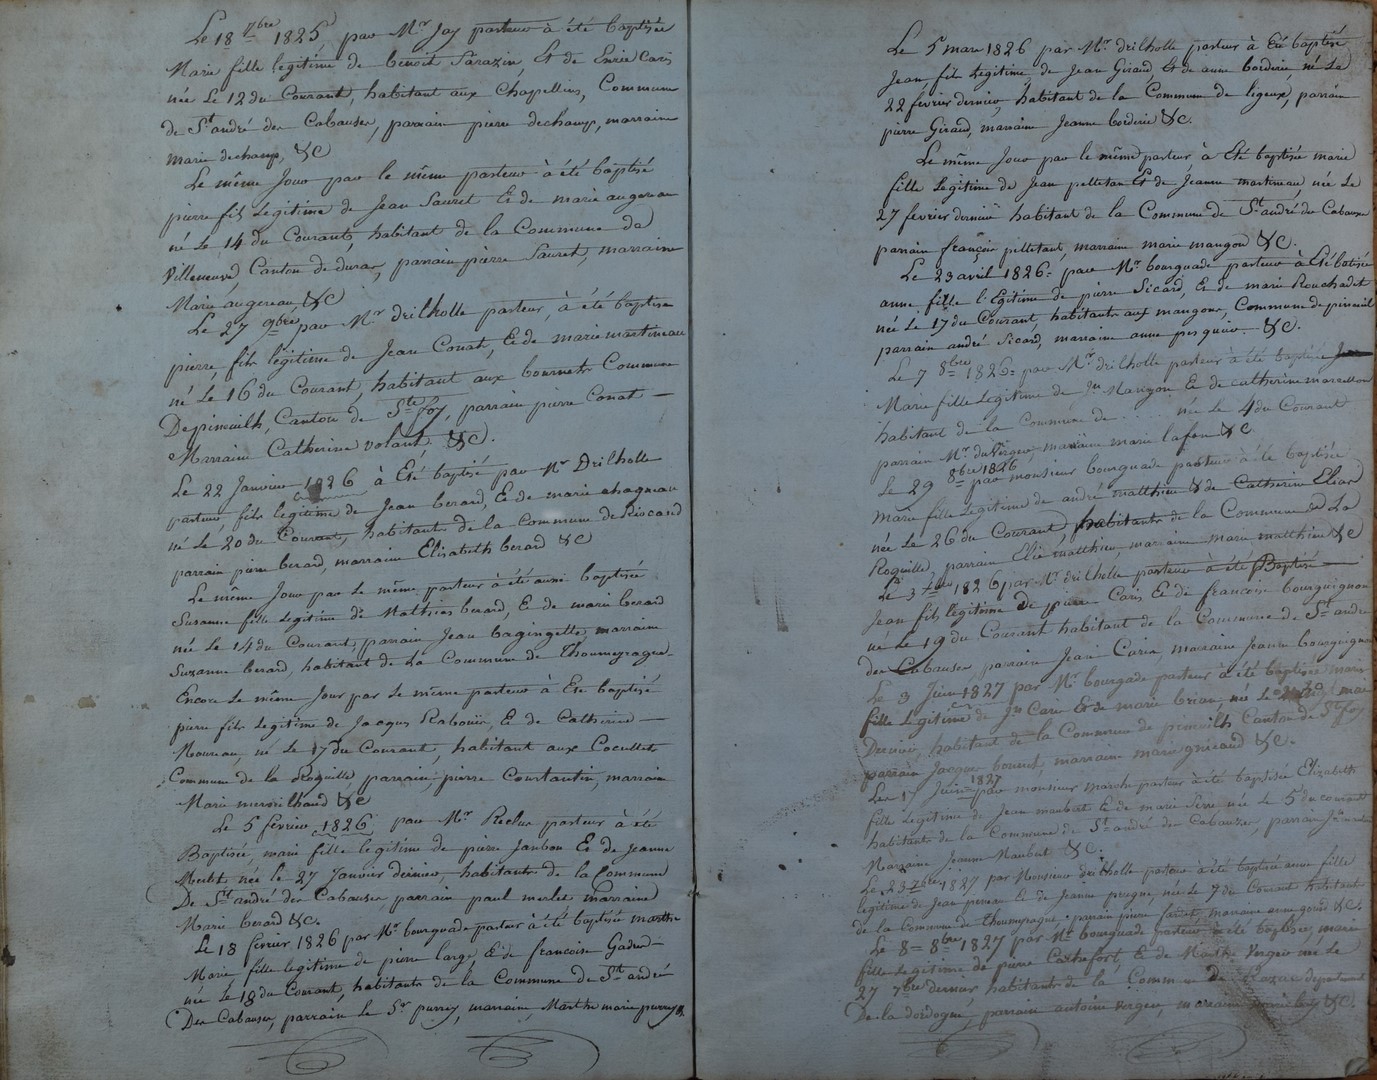 Le 18 7bre 1825, par Mr Jay pasteur à été baptisée
Marie fille legitime de benoit Sarazin, Et de Enrie Caris
née Le 12 du Courant, habitant aux Chapelins, Commune
de St andré des Cabauses, parrain pierre dechamp, marraine
marie dechamp, &C
Le même Jour par le même pasteur à été baptisé
pierre fils Legitime de Jean Sauret Et de marie augereau
né Le 14 du Courant, habitant de la Commune de
Villeneuve, Canton de duras, parrain pierre Sauret, marraine
Marie augereau, &C
Le 27 9bre par Mr drilholle pasteur, à été baptisé
pierre, fils légitime de Jean Conat, Et de marie martineau
né Le 16 du Courant, habitant aux bournets Commune
De pineuilh, Canton de Ste foy, parrain pierre Conat —
Marraine Catherine volant, &C.
Le 22 Janvier 1826 à Eté baptisé par Mr Drilholle
pasteur, fils legitime de Jean berard, Et de marie chagneau
né Le 20 du Courant, habitants de la Commune de Riocaud
parrain pierre berard, marraine Elisabeth berard &C
Le même Jour par Le même pasteur à été aussi baptisée
Susanne fille Legitime de Mathieu berard, Et de marie berard
née Le 14 du Courant, parrain Jean marraine
Suzanne berard, habitant de La Commune de Thoumeyragues
Encore Le même Jour par Le même pasteur à Eté baptisé
pierre fils Legitime de Jacques Rabouin, Et de Catherine —
Moureau, né Le 17 du Courant, habitant aux
Commune de la Roquille, parrain, pierre Constantin, marraine
Marie &C
Le 5 fevrier 1826 par Mr Reclus pasteur à été
Baptisée, marie fille legitime de pierre Jambon Et de Jeanne
Merlet née le 27 Janvier dernier, habitants de la Commune
De St andré des Cabauses, parrain paul merlet Marraine
Marie berard &C.
Le 18 fevrier 1826 par Mr bourguade pasteur à été baptisée marthe
Marie fille legitime de pierre large, Et de francoise —
née Le 18 du Courant, habitants de la Commune de St andré
Des Cabauses, parrain Le Sr marraine Marthe marie
Le 5 mars 1826 par Mr drilholle pasteur à Eté baptisé
Jean fils Legitime de Jean Giraud, Et de anne borderie, né Le
22 fevrier dernier, habitant de la Commune de ligeux, parrain
pierre Giraud, marraine Jeanne borderie &C.
Le même Jour par le même pasteur à Eté baptisée marie
fille Legitime de Jean pelletan Et de Jeanne martineau, née Le
27 fevrier dernier habitant de la Commune de St andré du Cabause
parrain françois pelletant, marraine marie mangon &C.
Le 23 avril 1826 = par Mr bourguade pasteur à Eté batisée
anne fille l'Egitime de pierre Sicard, Et de marie Rouchadet
née Le 17 du Courant, habitants aux mangons, Commune de pineuil
parrain andré Sicard, marraine anne &C.
Le 7 8bre 1826 = par Mr drilholle pasteur à été baptisée
Marie fille Legitime de Jn Et de catherine
habitant de la Commune de ..... née Le 4 du Courant
parrain Mr marraine marie lafon &C
Le 29 8bre 1826 par monsieur bourguade pasteur à été baptisée
Marie fille Legitime de andré matthieu & de Catherine
née Le 26 du Courant habitants de la Commune de La
Roquille, parrain Elie matthieu marraine marie matthieu &C
Le 3 1826 par Mr drilholle pasteur à été Baptisé —
Jean fils legitime de pierre Caris Et de francoise bourguignon
né Le 19 du Courent habitant de la Commune de St andre
des Cabauses, parrain Jean Caris, marraine Jeanne bourguignon
Le 3 Juin 1827 par Mr bourgade pasteur à été baptisée marie
fille Legitime de Jn Et de marie née Le mai
Dernier, habitant de la Commune de pineuilh Canton de Ste foy
parrain Jacques marraine marie &C.
Le 17 Juin 1827 par monsieur pasteur à été baptisée Elizabeth
fille Legitime de Jean Et de marie née Le 5 du courant
habitants de la Commune de St andré des Cabauses, parrain
Marraine Jeanne &C.
Le 23 7bre 1827 par Monsieur drilholle pasteur à été baptisée anne fille
legitime de Jean Et de Jeanne née Le 7 du Courant habitant
de la Commune de Thoumeyragues, parrain pierre marraine anne &C.
Le 8 = 8bre 1827 par Mr bourguade pasteur à été baptisée, marie
fille Legitime de pierre Et de Marthe Vergeo née Le
27 7bre dernier habitants de la Comm. De departement
De la dordogne, parrain antoine vergeo, marraine marie &C.